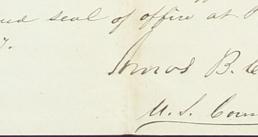 and seal of office at
7.
Amos B.
U. S. Coun